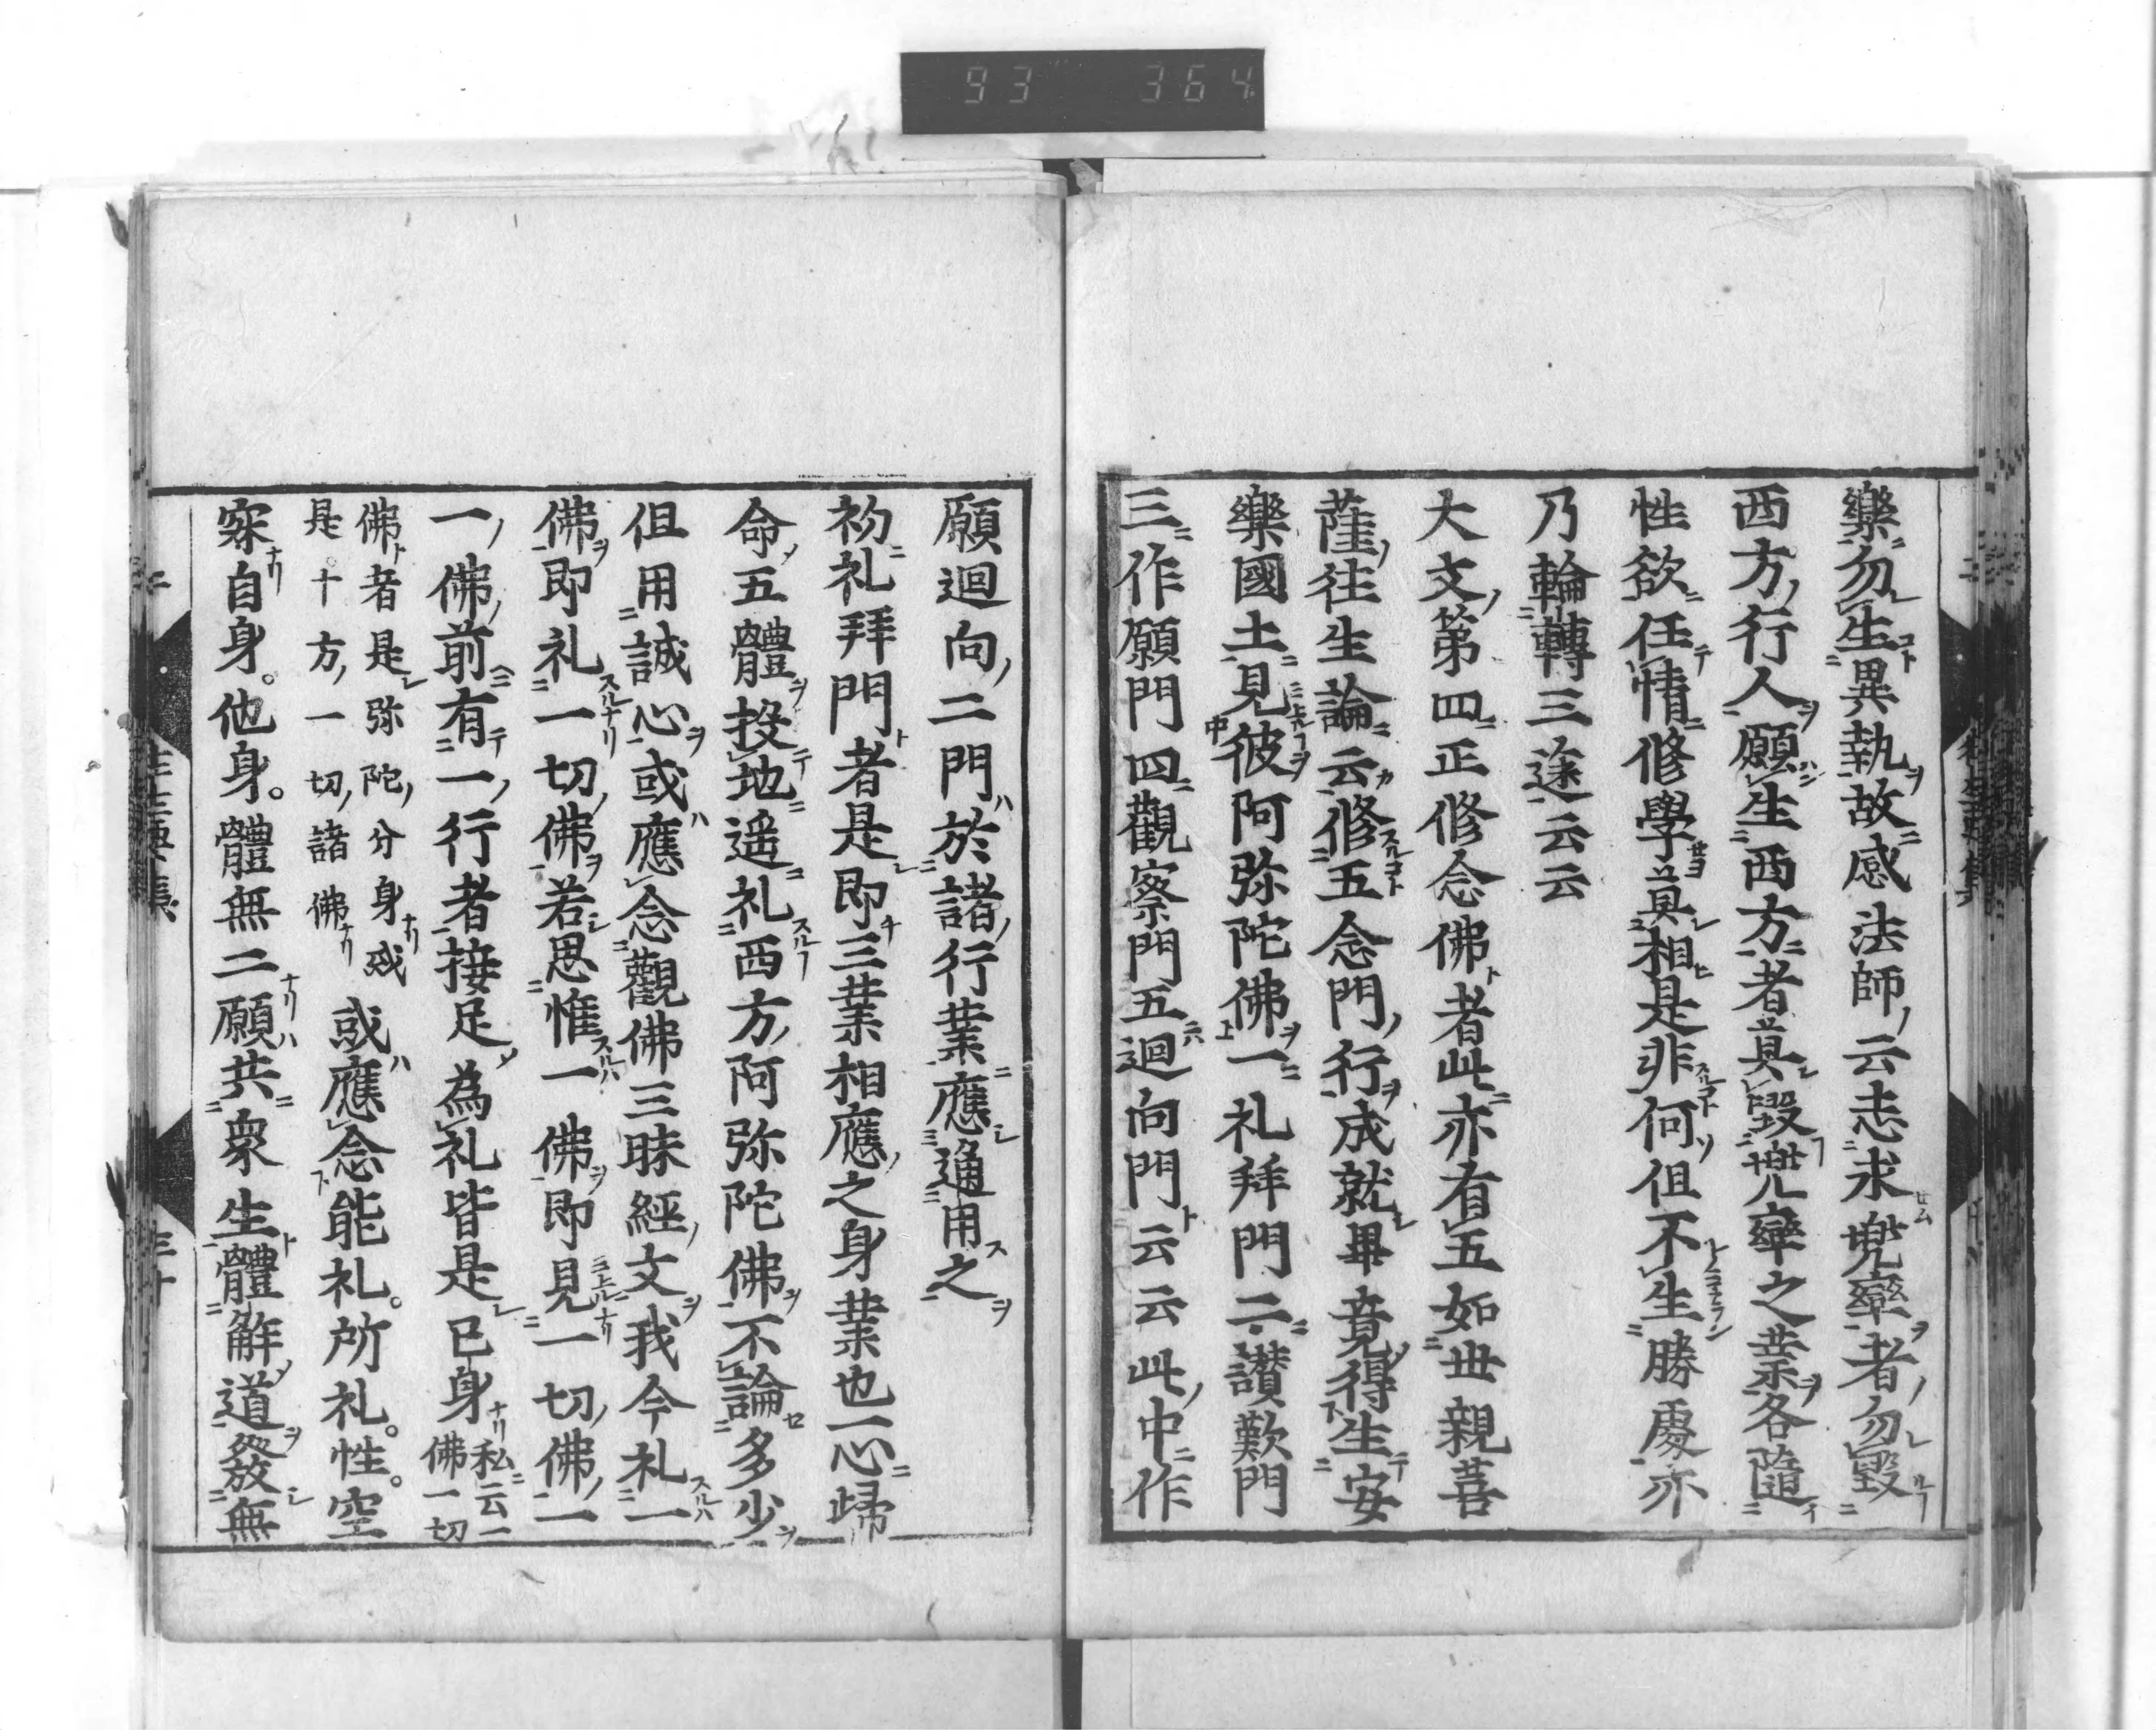 93 364
樂勿生異執故感法師云志求兜率者勿毀
西方行人願生西方者莫毀兜率之業各隨
性欲任情修學莫相是非何但不生勝處亦
乃輪轉三途云云
大文第四正修念佛者此亦有五如世親菩
薩往生論云修五念門行成就畢竟得生安
樂國土見彼阿弥陀佛一礼拜門二讃歎門
三作願門四觀察門五迴向門云云此中作
願迴向二門於諸行業應通用之
初礼拜門者是即三業相應之身業也一心歸
命五體投地遥礼西方阿弥陀佛不論多少
但用誠心或應念觀佛三昧經文我今礼一
佛即礼一切佛若思惟一佛即見一切佛一
一佛前有一行者接足為礼皆是已身私云一佛一切
佛者是弥陀分身或是十方一切諸佛或應念能礼。所礼。性。空
寂自身。他身。體無二願共衆生體解道發無